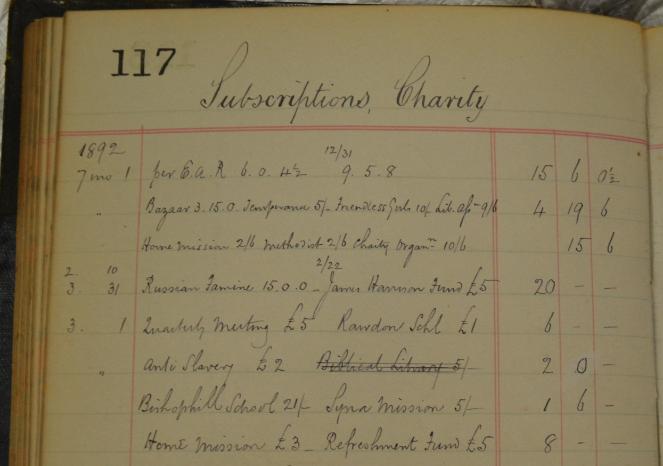 117
Subscriptions, Charity
1892
12/31
7 mo 1 per E.A.R 6.0.4½ 9.5.8 15 6 0½
" Bazaar 3.15.0 Temperance 5/- Friendless Girls 10/- Lib. Assn 9/6 4 19 6
Home Mission 2/6 Methodist 2/6 Charity Organn 10/6 15 6
2. 10 2/22
3. 31 Russian Famine 15.0.0 - James Harrison Fund £5 20 - -
3. 1 Quarterly Meeting £5 Rawdon Schl £1 6 - -
" Anti Slavery £2 Biblical Library 5/- 2 0 -
Bishophill School 21/- Syria Mission 5/- 1 6 -
Home Mission £3 - Refreshment Fund £5 8 - -